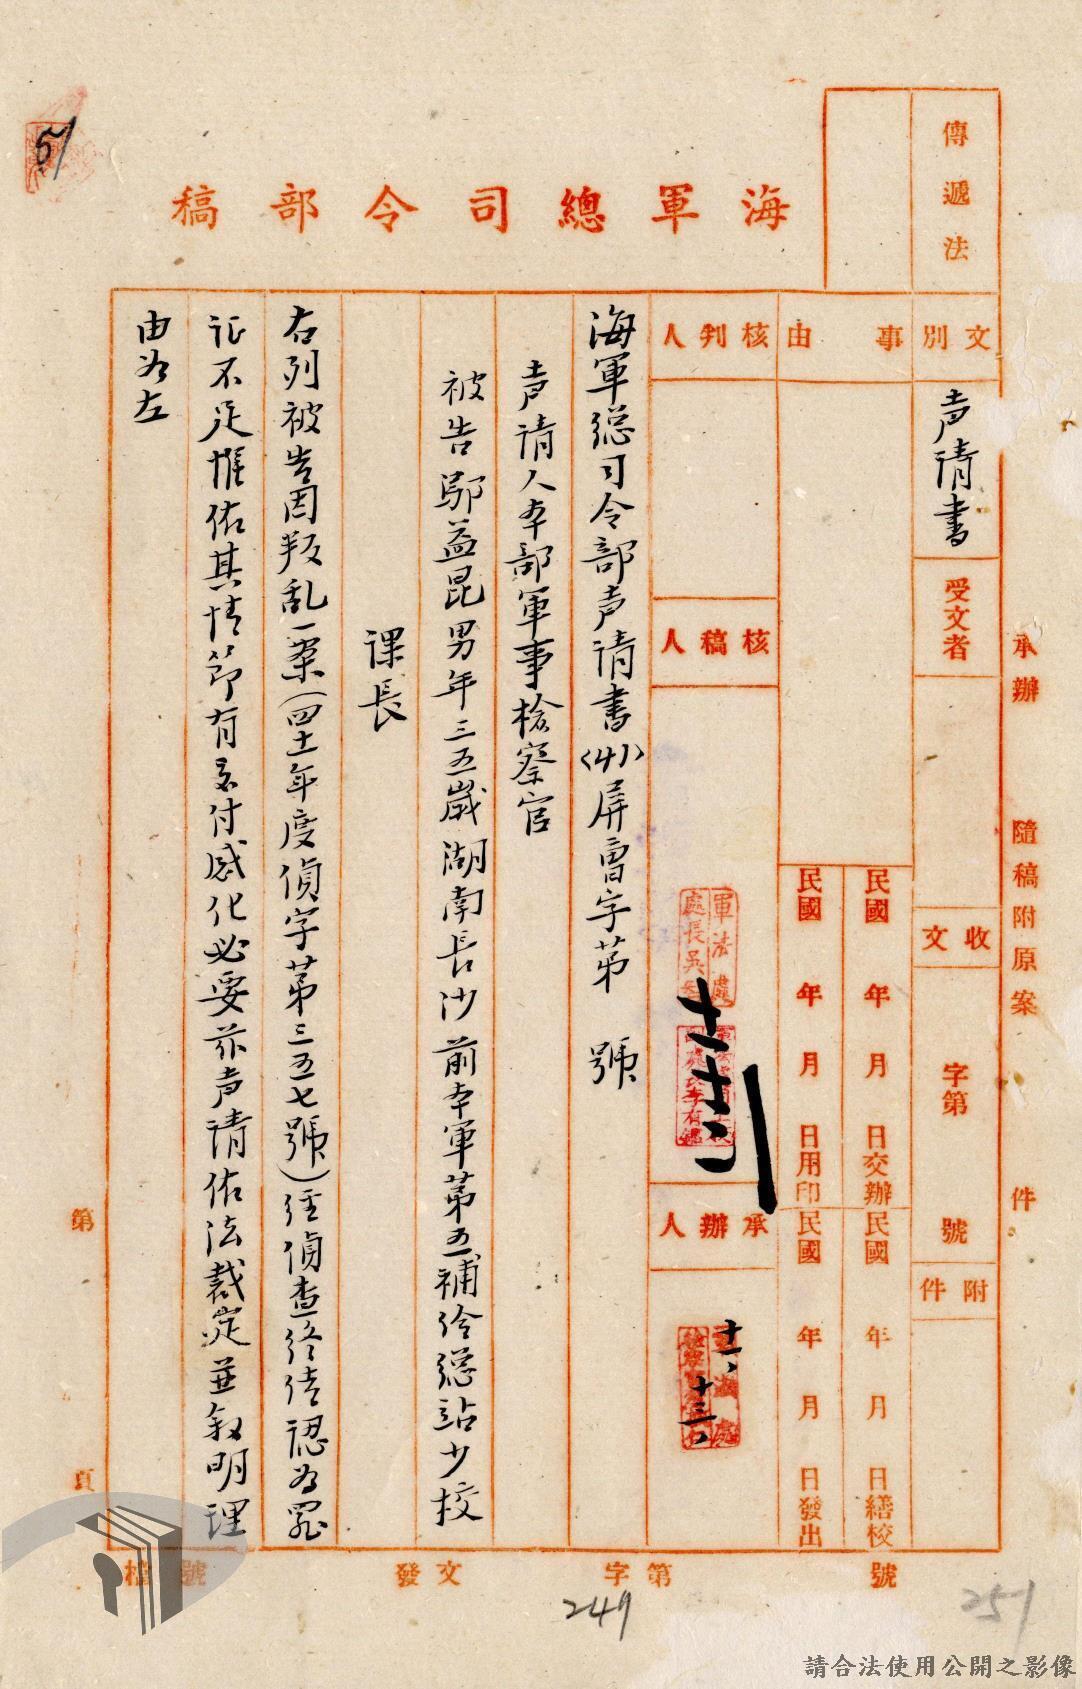 傳遞法
承辦 隨稿附原案 件
海軍總司令部稿
文別
声请書
受文者
收文
字第 號
附件
事由
民國 年 月 日交辦
民國 年 月 日繕校
民國 年 月 日用印
民國 年 月 日發出
核判人
核稿人
承辦人
十一、十三、
海軍總司令部声请書(41)屏晉字第 號
声请人本部軍事檢察官
被告鄔益昆男年三五歲湖南長沙前本軍第五補给總站少校
课長
右列被告因叛乱一案(四十一年度偵字第三五七號)经偵查终结認为罪
证不足惟依其情節有交付感化必要茲声请依法裁定並叙明理
由为左
第 頁
檔號
發文
字第 號
249
251
請合法使用公開之影像